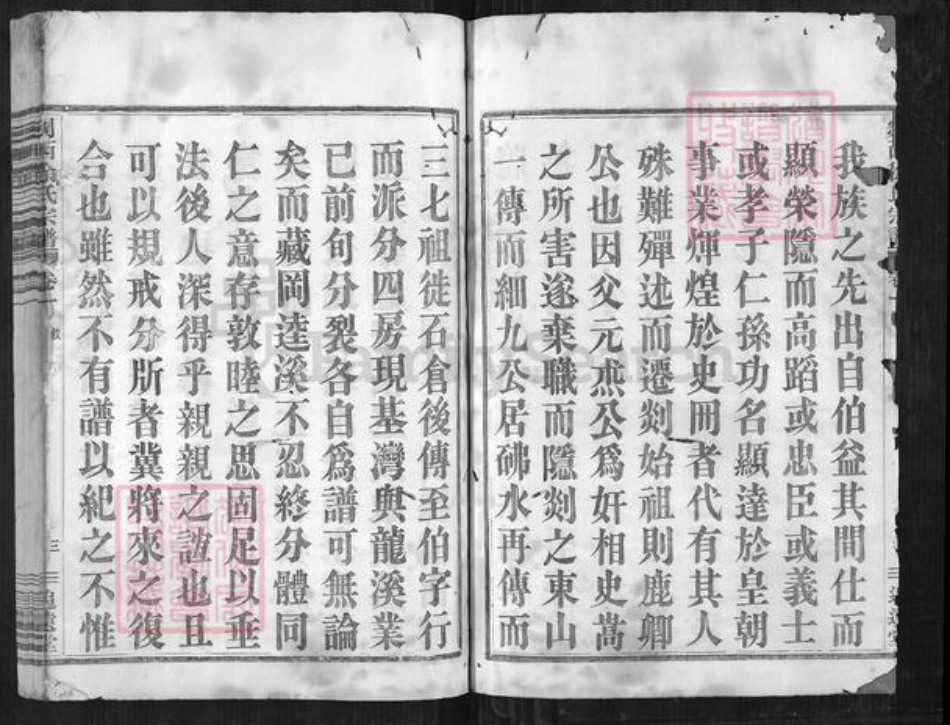 我族之先出自伯益其間仕而
顯榮隱而高蹈或忠臣或義士
或孝子仁孫功名顯達於皇朝
事業煇煌於史冊者代有其人
殊難殫述而遷剡始祖則鹿卿
公也因父元杰公為奸相史嵩
之所害遂棄職而隱剡之東山
一傳而細九公居砩水再傳而
三七祖徙石倉後傳至伯字行
而派分四房現基灣與龍溪業
已前旬分裂各自為譜可無論
矣而藏岡逵溪不忍終分體同
仁之意存敦睦之思固足以垂
法後人深得乎親親之誼也且
可以規戒分所者冀將來之復
合也雖然不有譜以紀之不惟
氏宗譜
三
FamilySearch